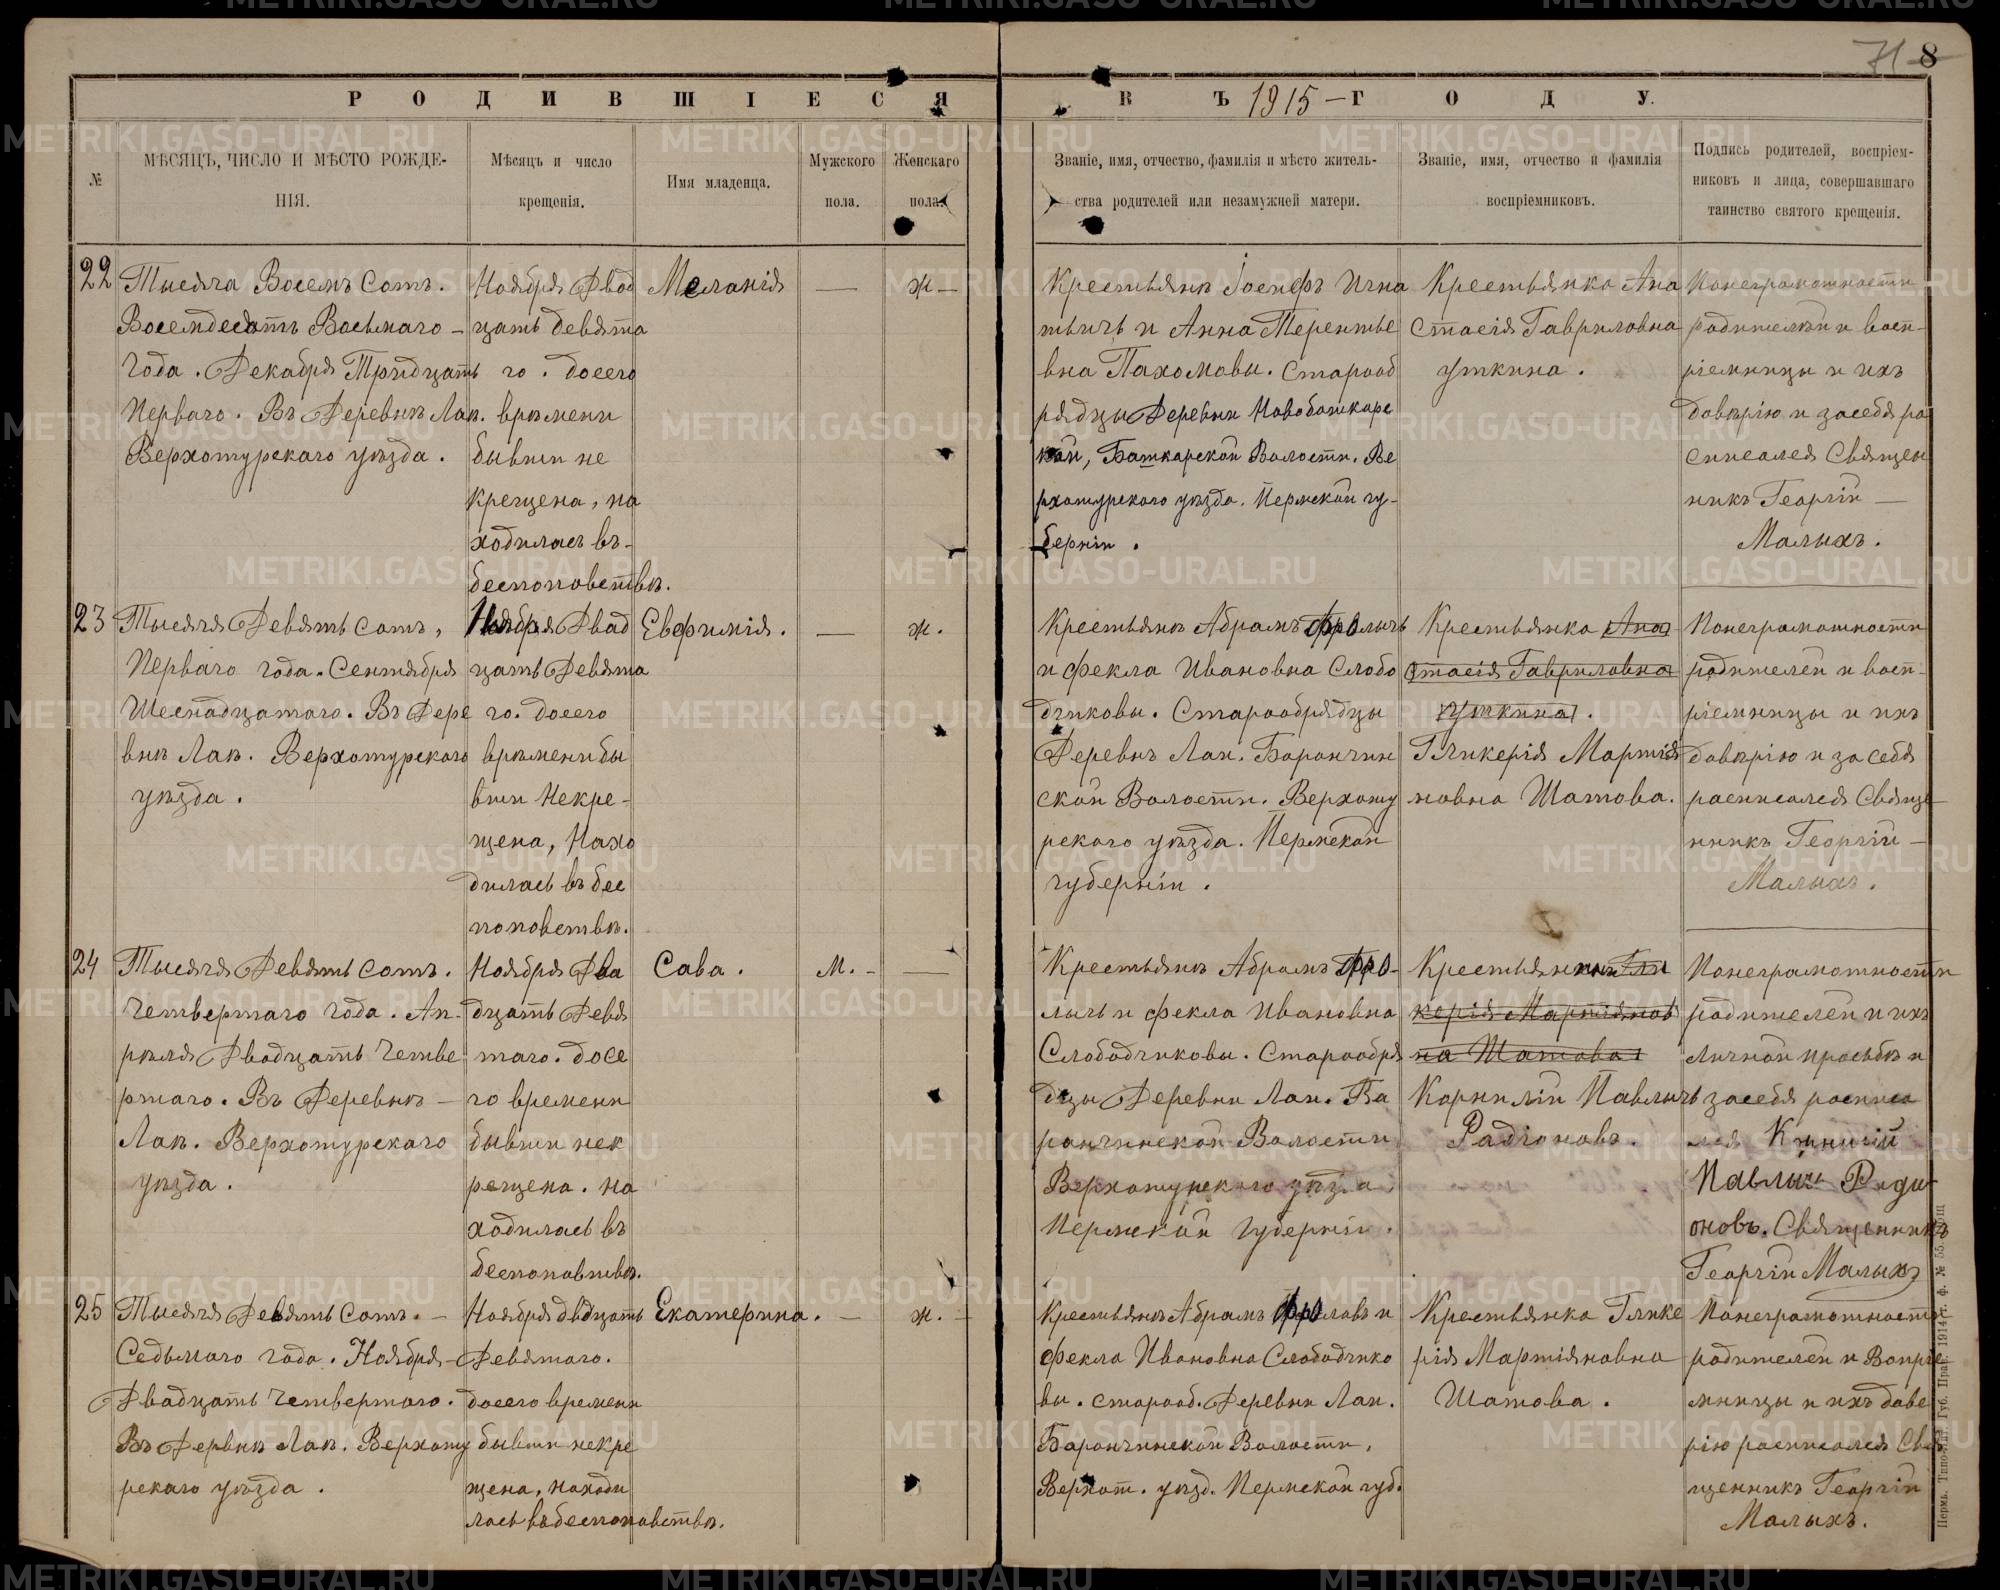 71
8
РОДИВШІЕСЯ
ВЪ 1915 – ГОДУ.
№
МѢСЯЦЪ, ЧИСЛО И МѢСТО РОЖДЕ-
НІЯ.
Мѣсяцъ и число
крещенія.
Имя младенца.
Мужского
пола.
Женскаго
пола.
Званіе, имя, отчество, фамилія и мѣсто житель-
ства родителей или незамужней матери.
Званіе, имя, отчество и фамилія
воспріемниковъ.
Подпись родителей, воспріем-
никовъ и лица, совершавшаго
таинство святого крещенія.
22
Тысяча Восемъ Сотъ.
Восемдесятъ Восьмаго –
года. Декабря Тридцать
Перваго. Въ Деревнѣ Лая.
Верхотурскаго уѣзда.
Ноября Двад
цать девята
го. досего
времени
бывши не
крещена, на
ходилась въ
беспоповствѣ.
Меланія
—
ж —
Крестьянъ Іосифъ Игна
тьичъ и Анна Терентье
вна Пахомовы. Старооб
рядцы Деревни Новобашкарс
кой, Башкарской Волости. Ве
рхотурскаго уѣзда. Пермской гу-
берніи.
Крестьянка Ана
стасія Гавриловна
Уткина.
Понеграмотности
родителей и восп-
ріемницы и ихъ
довѣрію и засебя ра
списался Священ
никъ Георгій —
Малыхъ.
23
Тысяча Девять сотъ,
Перваго года. Сентября
Шеснадцатаго. Въ Дере
внѣ Лая. Верхотурскаго
уѣзда.
Ноября Двад
цать Девята
го. досего
времени бы
вши Некре-
щена, Нахо
дилась въ бес
поповствѣ.
Евфимія.
—
ж.
Крестьянъ Абрамъ Фролычъ
и Фекла Ивановна Слобо
дчиковы. Старообрядцы
Деревнѣ Лая. Баранчин
ской Волости. Верхоту
рскаго уѣзда. Пермской
губерніи.
Крестьянка Ана
стасія Гавриловна
Уткина.
Гликерія Мартія
новна Шатова.
Понеграмотности
родителей и восп-
ріемницы и ихъ
довѣрію и за себя
расписался Свяще
нникъ Георгій —
Малыхъ.
24
Тысяча Девять сотъ.
Четвертаго года. Ап-
рѣля Двадцать Четве
ртаго. Въ Деревнѣ —
Лая. Верхотурскаго
уѣзда.
Ноября Два
дцать Девя
таго. досе
го времени
бывши нек
рещена. на
ходилась въ
беспоповствѣ.
Сава.
М. –
—
Крестьянъ Абрамъ Фро-
лычъ и Фекла Ивановна
Слободчиковы. Старообря
дцы Деревни Лая. Ба
ранчинской Волости
Верхотурскаго уѣзда
Пермской губерніи.
Крестьянинъ Гли
керія Мартіянов
на Шатова
Корнилій Павлычъ
Радіоновъ.
Понеграмотности
родителей и ихъ
личной просьбѣ и
засебя расписа
лся
Павлычъ Роди
оновъ. Священникъ
Георгій Малыхъ
25
Тысяча Девять Сотъ. —
Седьмаго года. Ноября —
Двадцать Четвертаго.
Въ Дервнѣ Лая. Верхоту
рскаго уѣзда.
Ноября двдцать
Девятаго.
досего времени
бывши некре
щена, находи
лась въ беспоповствѣ.
Екатерина.
—
ж. –
Крестьянъ Абрамъ Фроловъ и
Фекла Ивановна Слободчико
вы. старооб. Деревни Лая.
Баранчинской Волости,
Верхот. уѣзд. Пермской губ.
Крестьянка Глике
рія Мартіяновна
Шатова.
Понеграмотности
родителей и Вопріе
мницы и ихъ дове
рію расписался Свя
щенникъ Георгій
Малыхъ.
METRIKI.GASO-URAL.RU